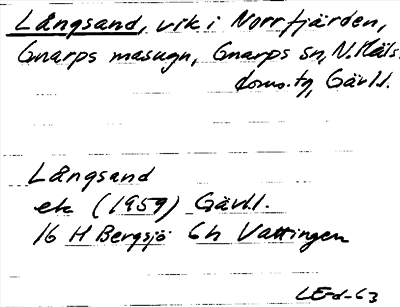 Långsand, vik i Norrfjärden,
Gnarps masugn, Gnarps sn, N. Häls.
doms.tg, Gävl.l.
Långsand
ek (1959) Gävl.l.
16 H Bergsjö 6h Vattingen
LE-d-63